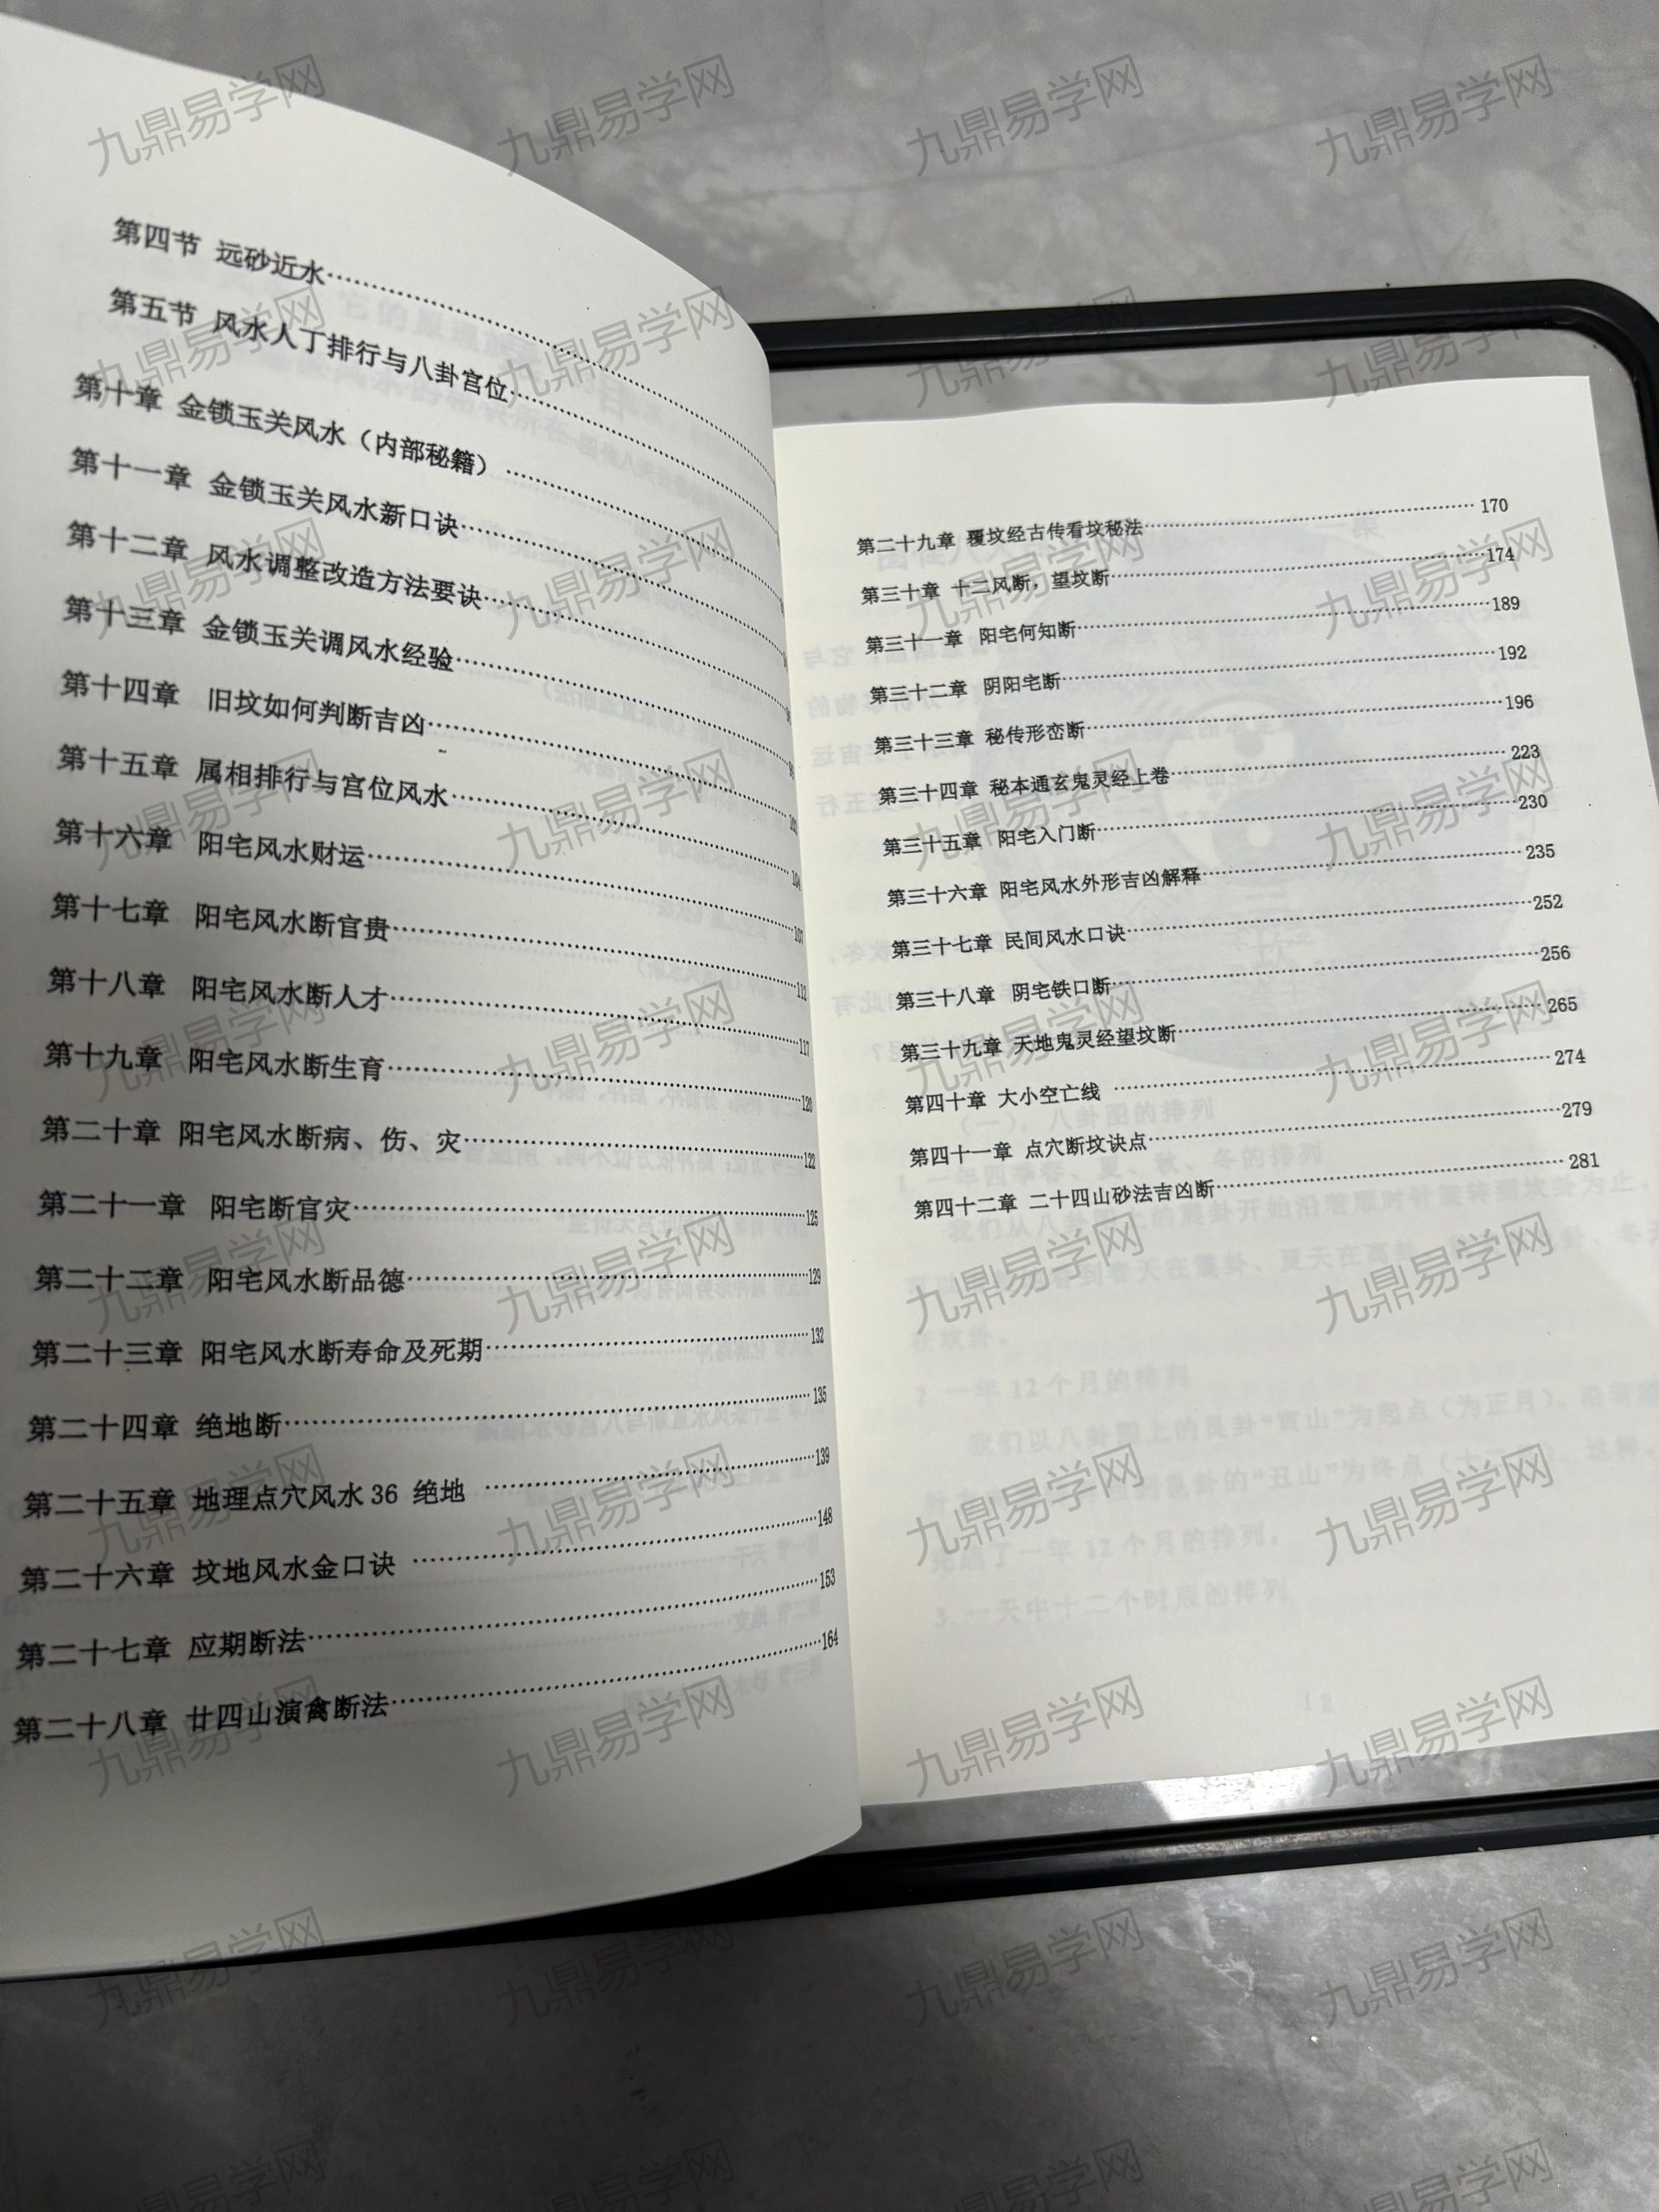 第四节 远砂近水
第五节 风水人丁排行与八卦宫位
第十章 金锁玉关风水（内部秘籍）
第十一章 金锁玉关风水新口诀
第十二章 风水调整改造方法要诀
第十三章 金锁玉关调风水经验
第十四章 旧坟如何判断吉凶
第十五章 属相排行与宫位风水
第十六章 阳宅风水财运
第十七章 阳宅风水断官贵
第十八章 阳宅风水断人才
第十九章 阳宅风水断生育
第二十章 阳宅风水断病、伤、灾
第二十一章 阳宅断官灾
第二十二章 阳宅风水断品德
第二十三章 阳宅风水断寿命及死期
第二十四章 绝地断
第二十五章 地理点穴风水36 绝地
第二十六章 坟地风水金口诀
第二十七章 应期断法
第二十八章 廿四山演禽断法
102
104
107
112
117
120
122
125
129
132
135
139
148
153
164
第二十九章 覆坟经古传看坟秘法 170
第三十章 十二风断，望坟断 174
第三十一章 阳宅何知断 189
第三十二章 阴阳宅断 192
第三十三章 秘传形峦断 196
第三十四章 秘本通玄鬼灵经上卷 223
第三十五章 阳宅入门断 230
第三十六章 阳宅风水外形吉凶解释 235
第三十七章 民间风水口诀 252
第三十八章 阴宅铁口断 256
第三十九章 天地鬼灵经望坟断 265
第四十章 大小空亡线 274
第四十一章 点穴断坟诀点 279
第四十二章 二十四山砂法吉凶断 281
九鼎易学网